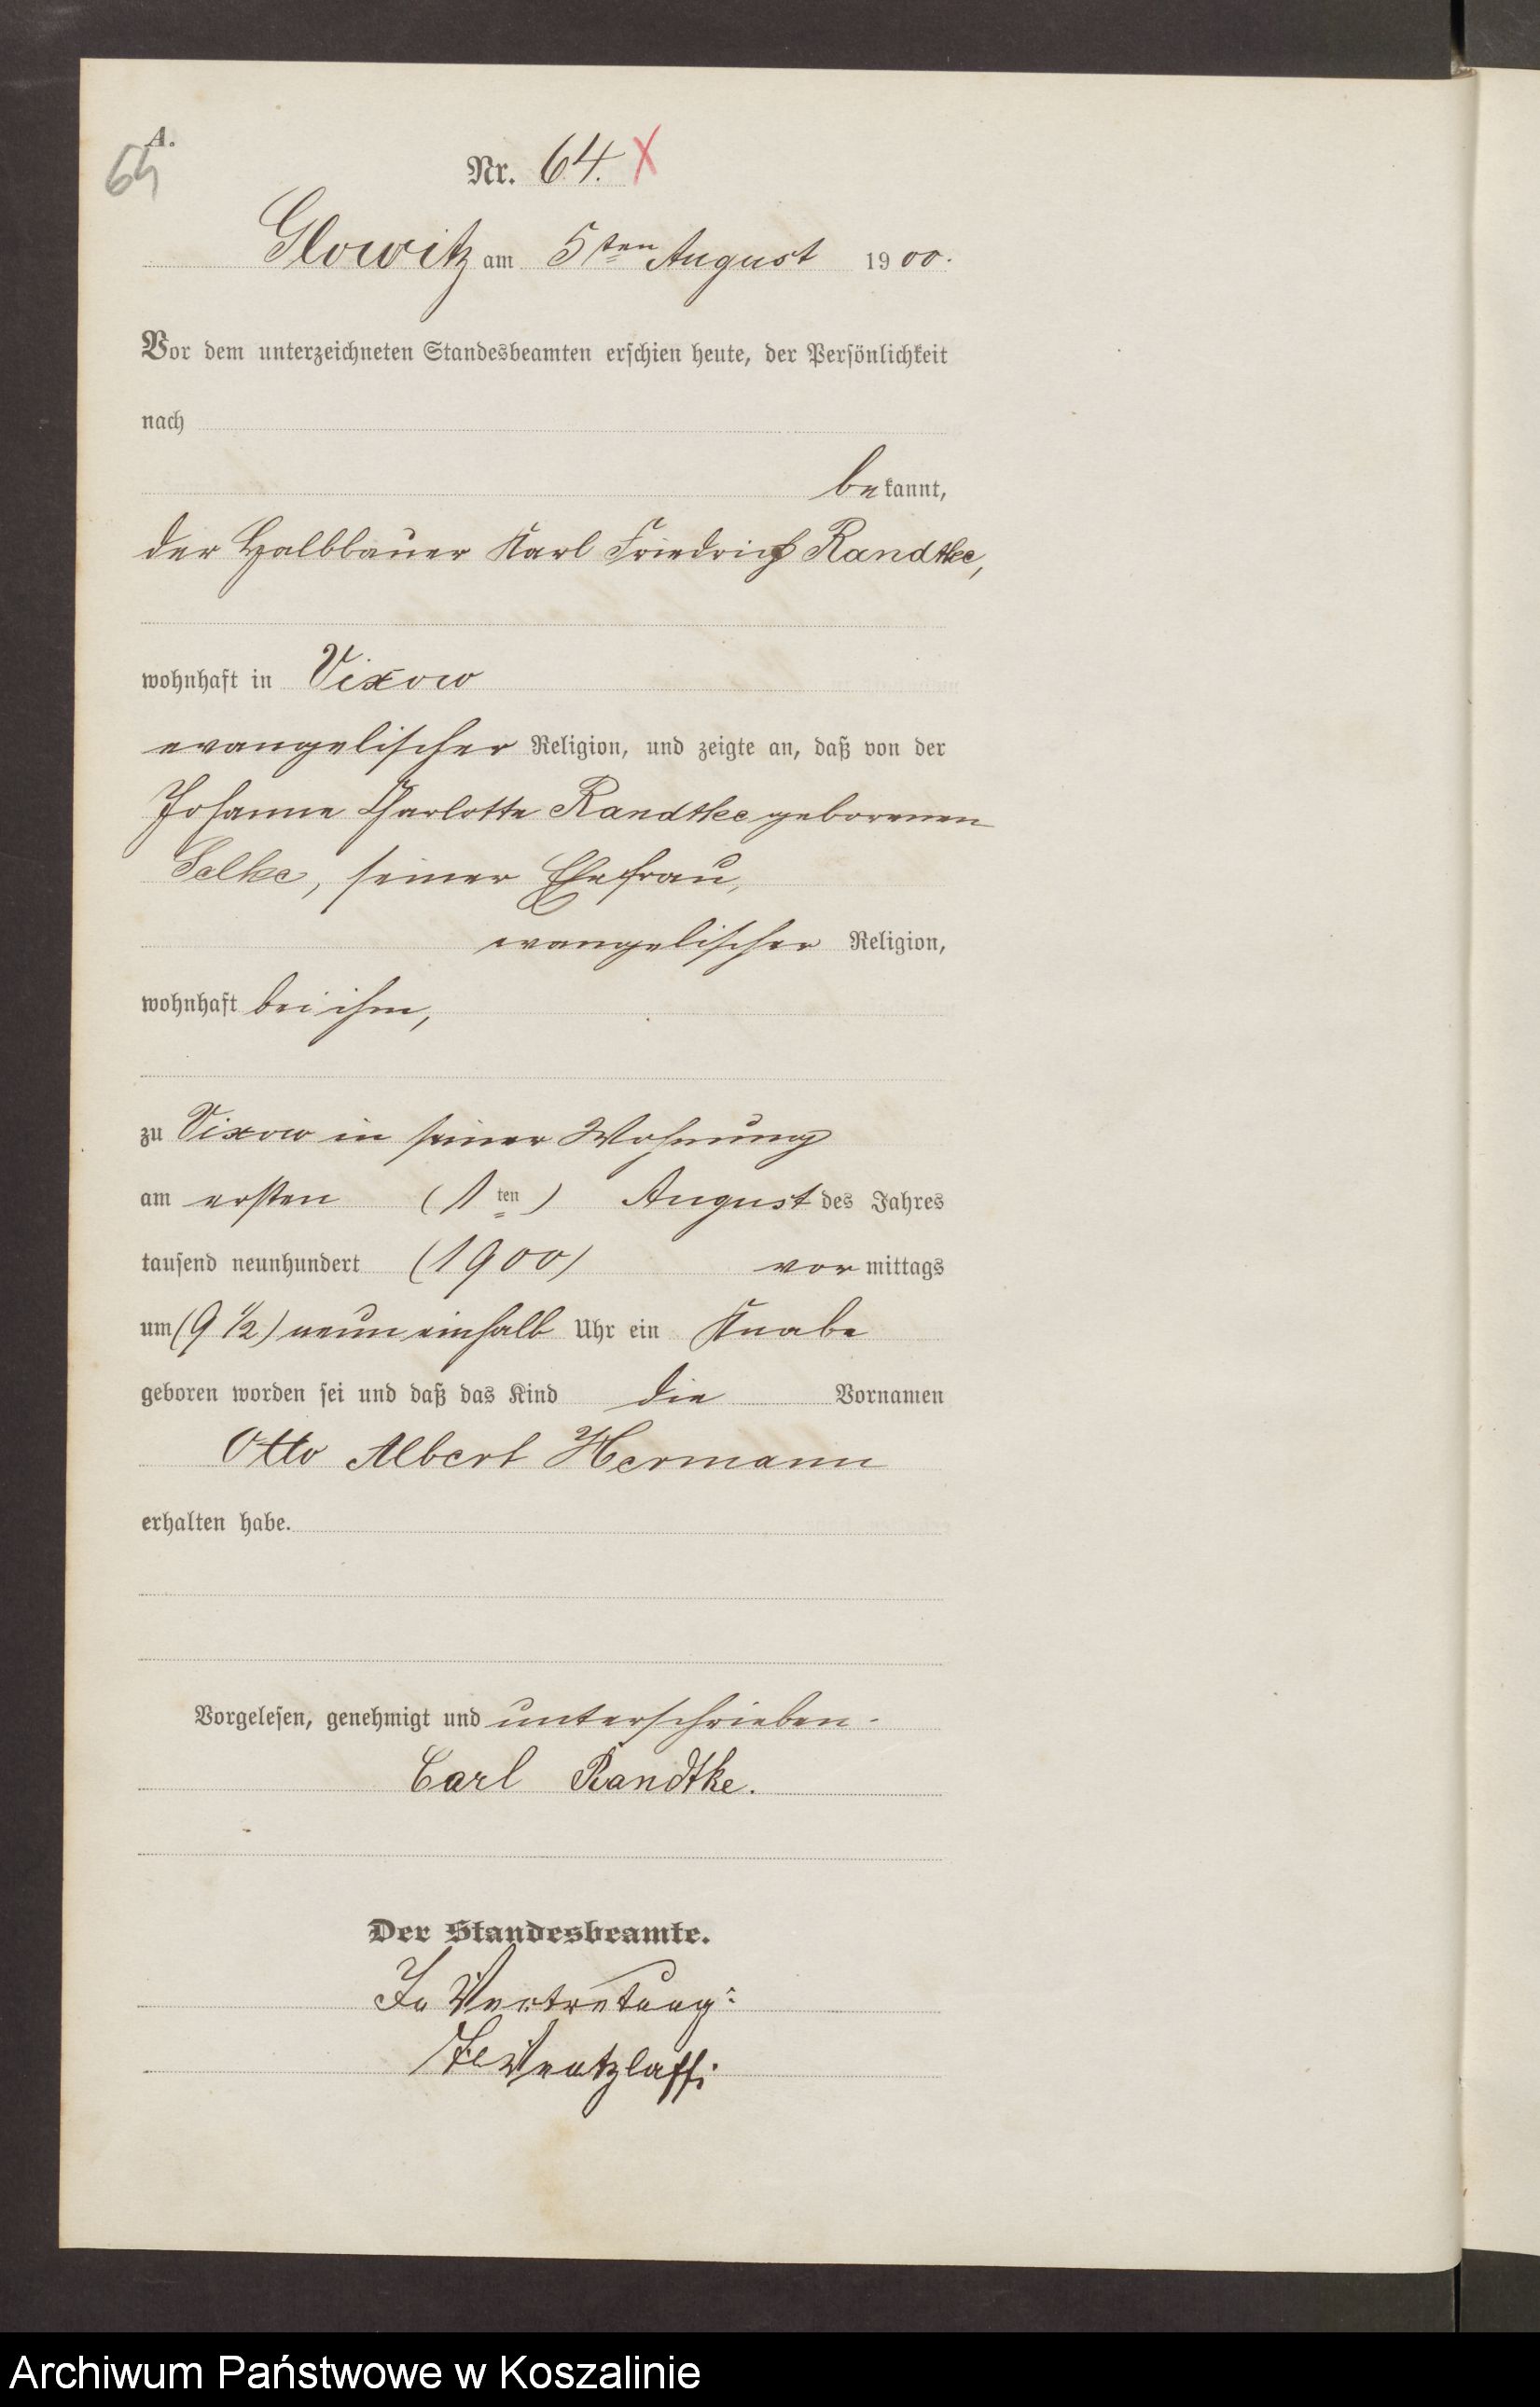 A.
64
Nr. 64. X
Glowitz am 5ten August 1900.
Vor dem unterzeichneten Standesbeamten erschien heute, der Persönlichkeit
nach
bekannt,
der Halbbauer Karl Friedrich Randtke,
wohnhaft in Vixow
evangelischer Religion, und zeigte an, daß von der
Johanne Charlotte Randtke geborenen
Selke, seiner Ehefrau,
evangelischer Religion,
wohnhaft bei ihm,
zu Vixow in seiner Wohnung
am ersten (1ten) August des Jahres
tausend neunhundert (1900) vormittags
um (9 1/2) neun einhalb Uhr ein Knabe
geboren worden sei und daß das Kind die Vornamen
Otto Albert Hermann
erhalten habe.
Vorgelesen, genehmigt und unterschrieben.
Carl Randtke.
Der Standesbeamte.
In Vertretung:
Wentzlaff
Archiwum Państwowe w Koszalinie